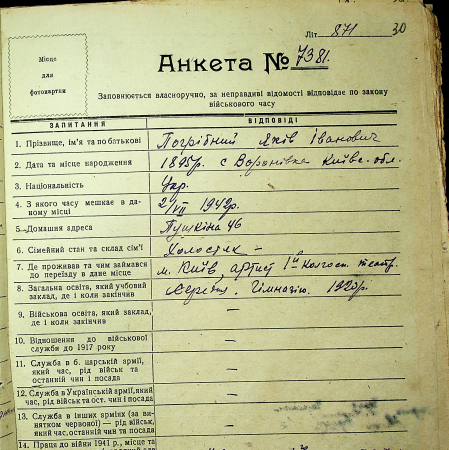 Літ 871 30
Місце
для
фотокартки
Анкета № 7381.
Заповнюється власноручно, за неправдиві відомості відповідає по закону
військового часу
ЗАПИТАННЯ ВІДПОВІДІ
1. Прізвище, ім'я та по батькові Погрібний Яків Іванович
2. Дата та місце народження 1895р. с Воронівка Київс. обл.
3. Національність Укр.
4. З якого часу мешкає в да-
ному місці 2/VII 1942р.
5. Домашня адреса Пушкіна 46
6. Сімейний стан та склад сім'ї Холостяк —
7. Де проживав та чим займався
до переїзду в дане місце м. Київ, артист 1й Колгосп. театр.
8. Загальна освіта, який учбовий
заклад, де і коли закінчив Середня. Гімназію. 1920р.
9. Військова освіта, який заклад,
де і коли закінчив —
10. Відношення до військової
служби до 1917 року —
11. Служба в б. царській армії,
який час, рід військ та
останній чин і посада —
12. Служба в Українській армії, який
час, рід військ та ост. чин і посада —
13. Служба в інших арміях (за ви-
нятком червоної) — рід військ,
який час, останній чин та посада —
14. Праця до війни 1941 р., місце та